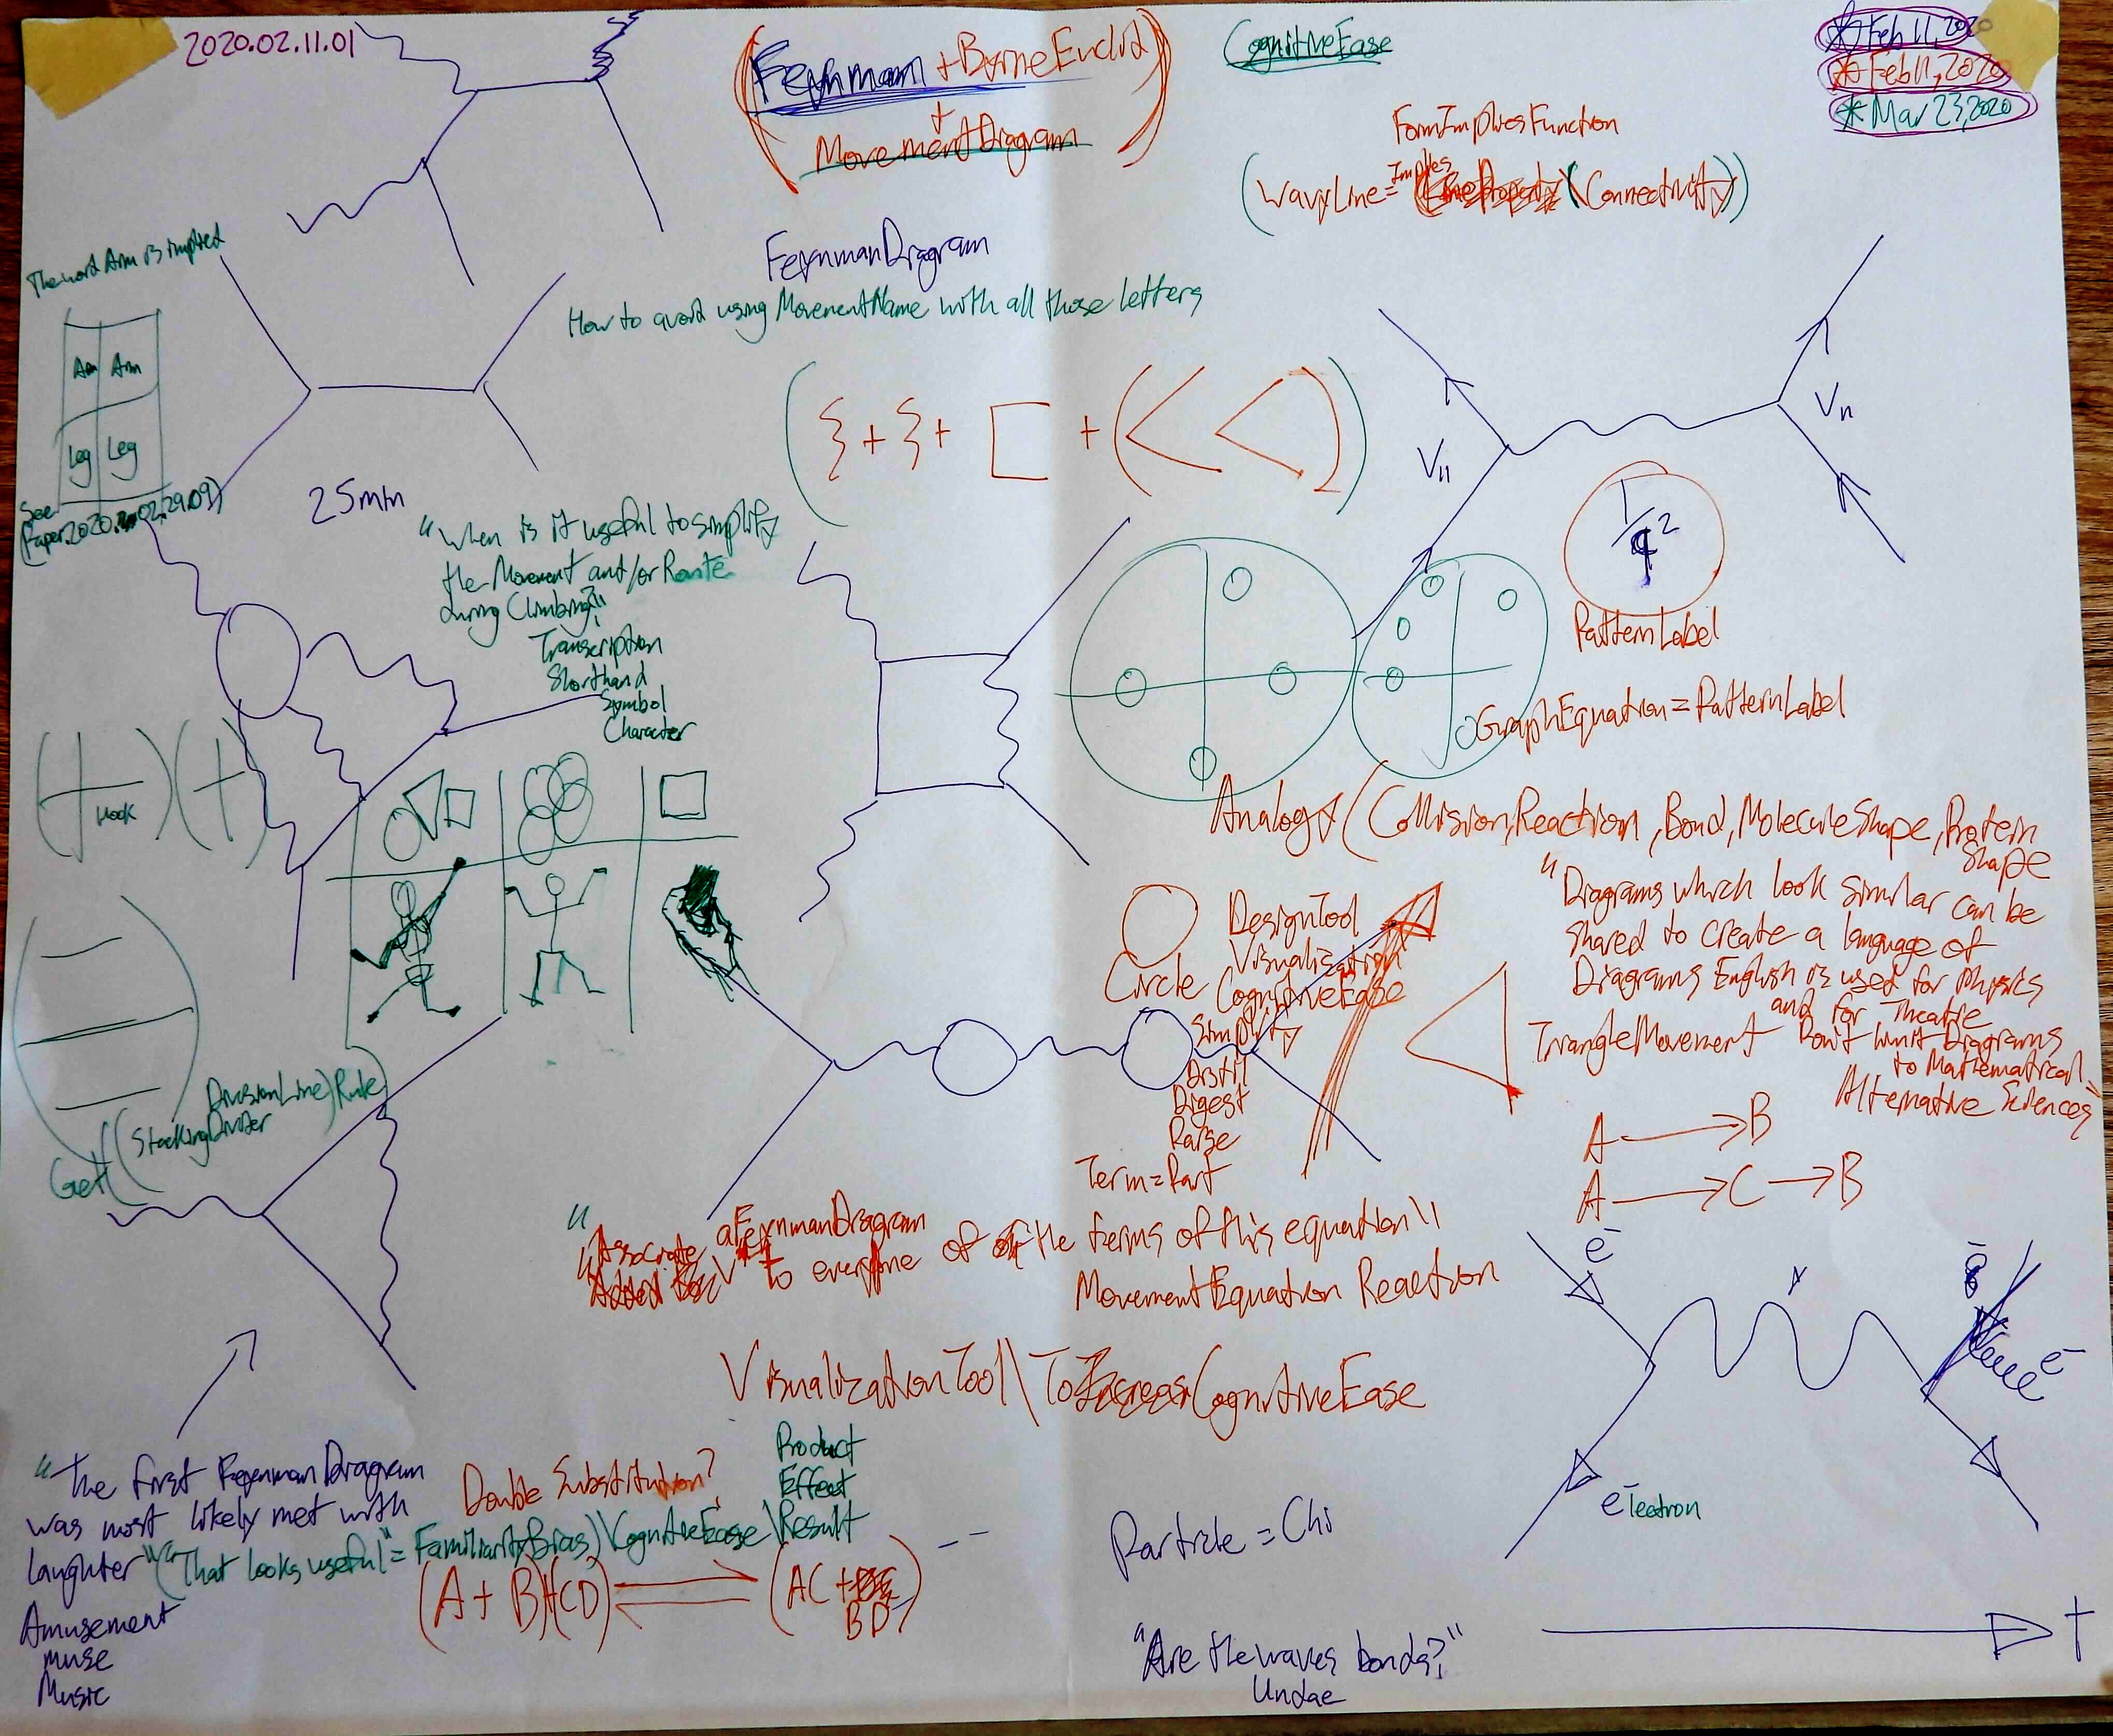 2020.02.11.01
(Feynman + ByrneEuclid)
+
MovementDiagram
CognitiveEase
*Feb 11, 2020
*Feb 11, 2020
*Mar 23, 2020
FormImpliesFunction
(WavyLine= Implies (Connectivity))
The word Arm is implied
FeynmanDiagram
How to avoid using MovementName with all those letters
Arm Arm
Leg Leg
See
(Paper.2020.02.29.09)
25min
"When is it useful to simplify
the Movement and/or Route
during Climbing?"
Transcription
Shorthand
Symbol
Character
V11
Vn
1/q2
PatternLabel
GraphEquation=PatternLabel
Hook
Analogy (Collision, Reaction, Bond, MoleculeShape, Protein
Shape
"Diagrams which look similar can be
shared to create a language of
Diagrams English is used for Physics
and for Theatre
Don't limit Diagrams
to Mathematical
Alternative Sciences"
Circle
DesignTool
Visualization
CognitiveEase
Simplify
Distil
Digest
Parse
Term=Part
TriangleMovement
A → B
A → C → B
DivisionLine) Rule)
(StackingDivider
Get
"Associate a FeynmanDiagram
to everyone of the terms of this equation"
MovementEquation Reaction
VisualizationTool\ToIncreaseCognitiveEase
e-
e-
e-
electron
"The first FeynmanDiagram
was most likely met with
laughter"
("That looks useful"=FamiliarityBias)\CognitiveEase\Result
Product
Effect
Amusement
Muse
Music
Double Substitution?
(A + B)+(CD) ⇌ (AC + BD)
Particle = Chi
"Are the waves bonds?"
Undae
t